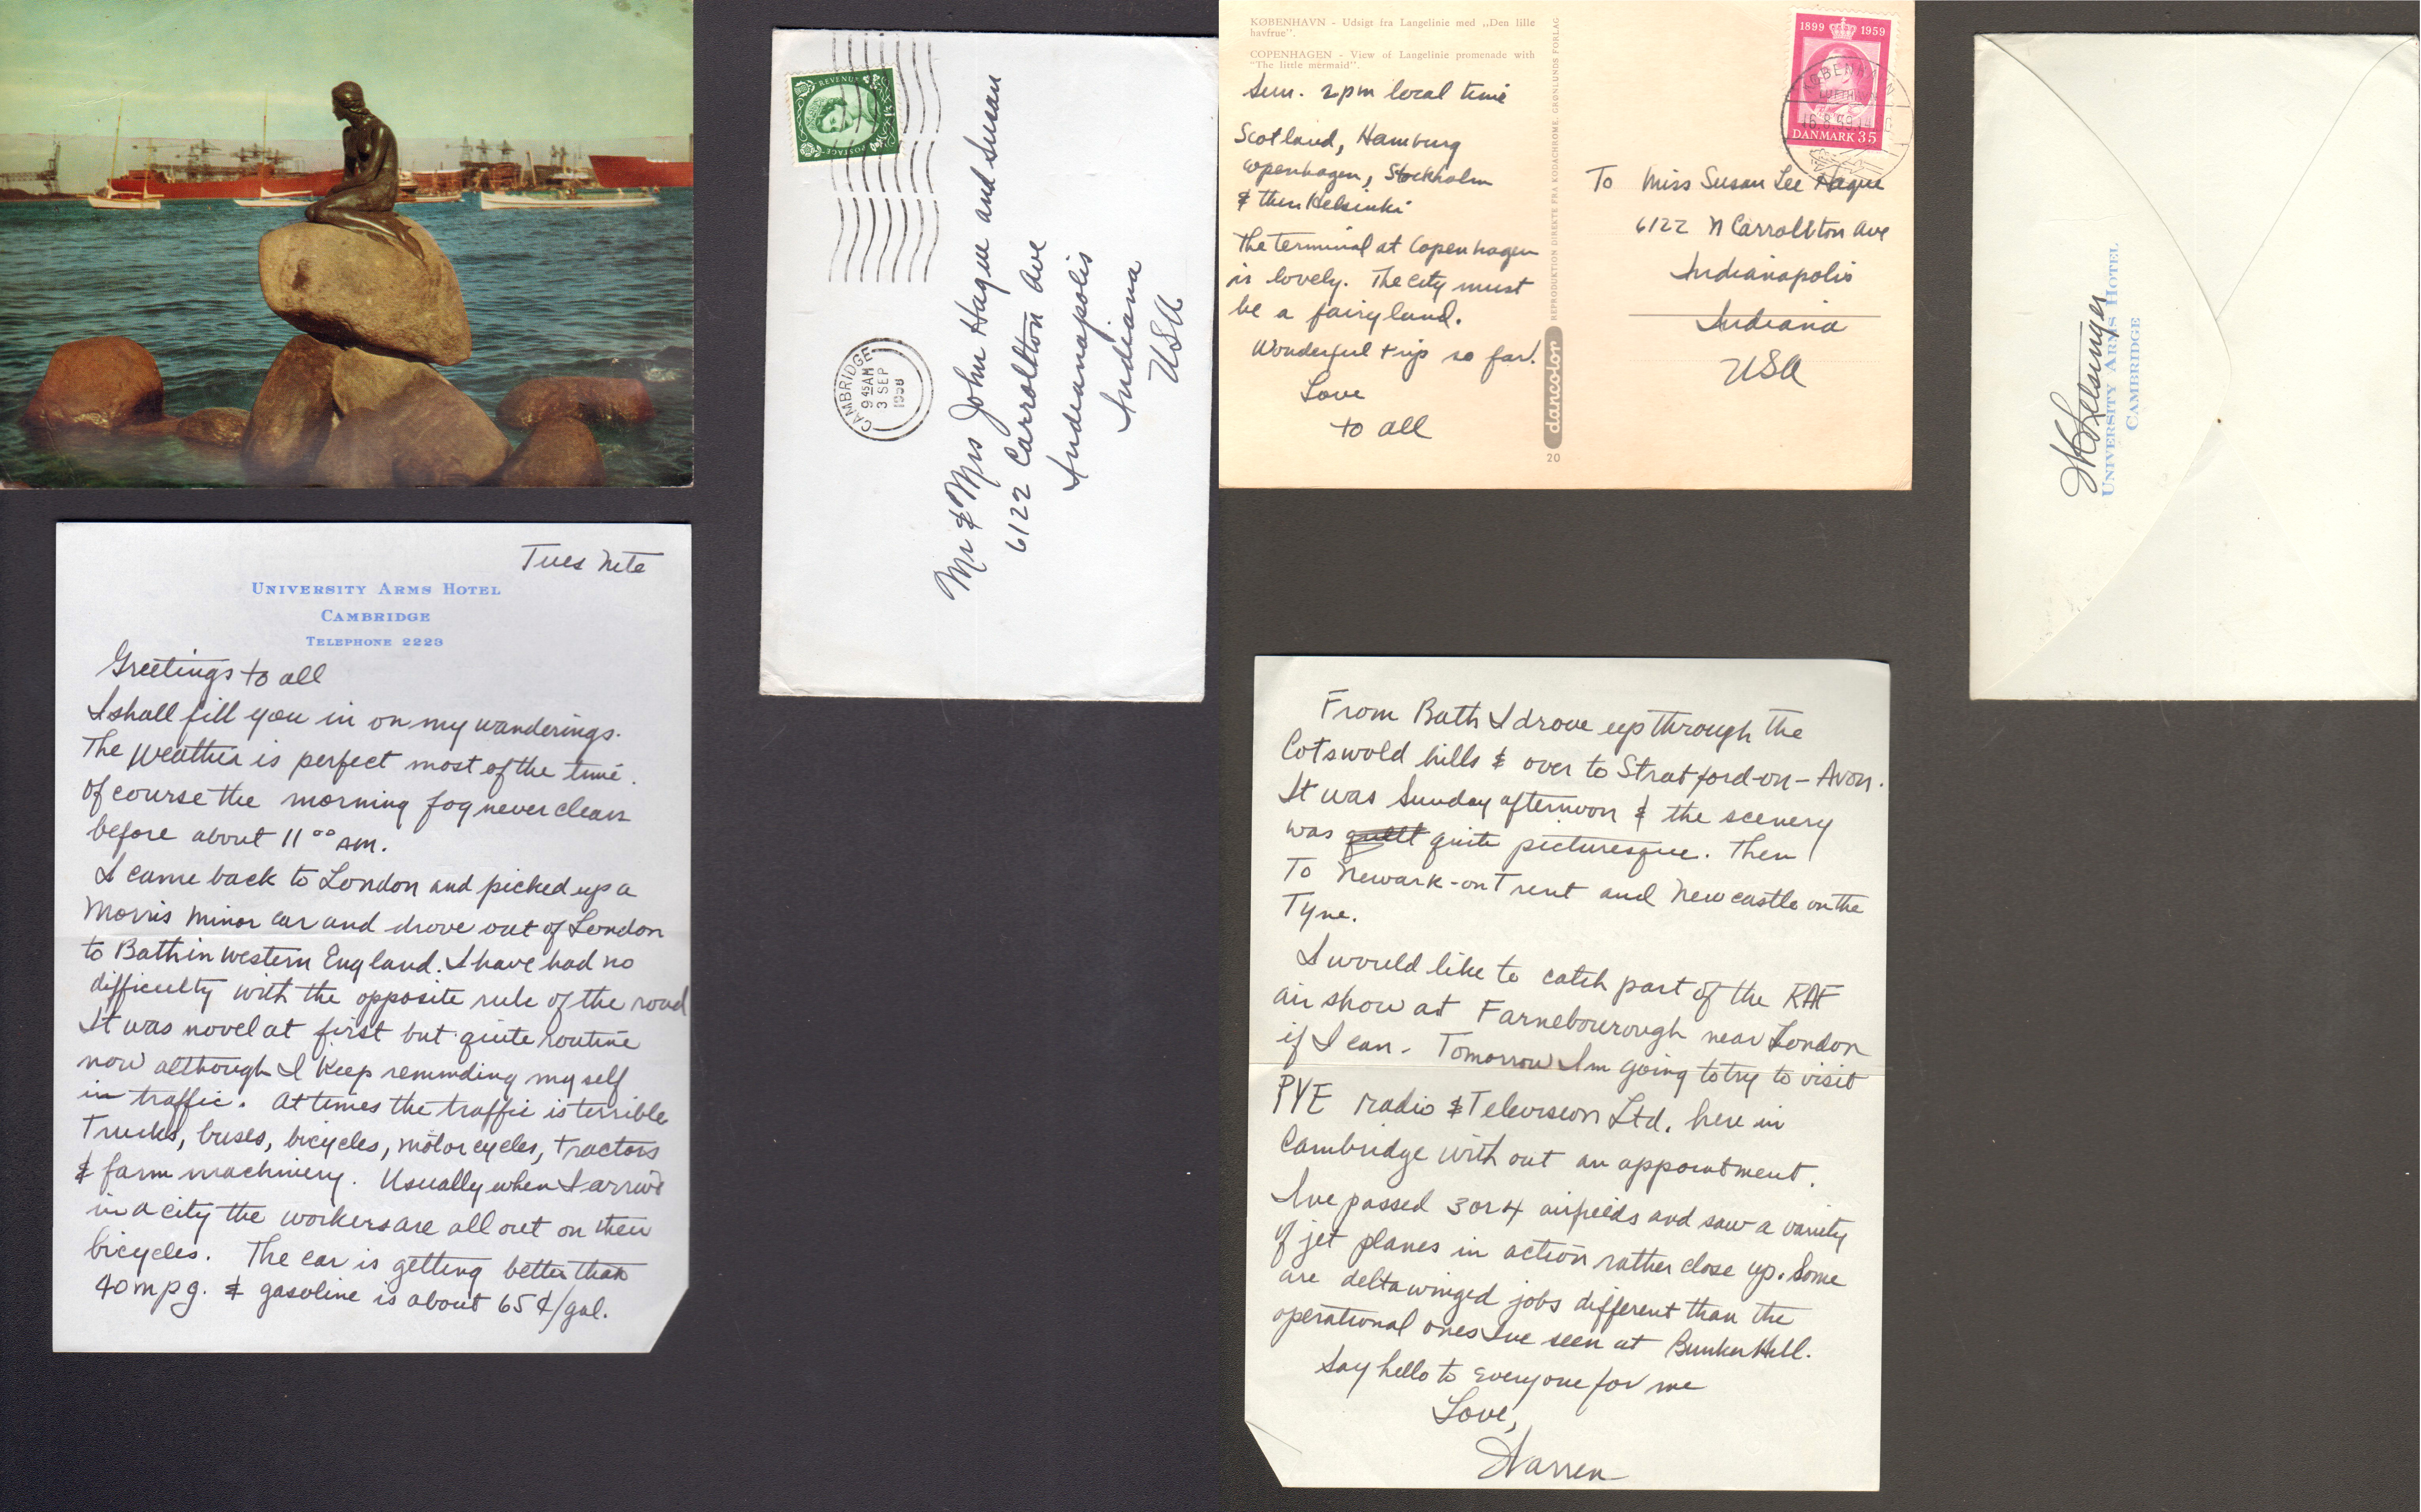 REVENUE
POSTAGE
CAMBRIDGE
9 45 AM
3 SEP
1958
Mr & Mrs John Hague and Susan
6122 Carrollton Ave
Indianapolis
Indiana
USA
KØBENHAVN - Udsigt fra Langelinie med „Den lille
havfrue”.
COPENHAGEN - View of Langelinie promenade with
“The little mermaid”.
Sun. 2pm local time
Scotland, Hamburg
Copenhagen, Stockholm
& then Helsinki
The terminal at Copenhagen
is lovely. The city must
be a fairyland.
Wonderful trip so far!
Love
to all
REPRODUKTION DIREKTE FRA KODACHROME. GRØNLUNDS FORLAG
dancolor
20
1899 1959
DANMARK 35
KØBENHAVN
LUFTHAVN
16.8.59
To Miss Susan Lee Hague
6122 N Carrollton Ave
Indianapolis
Indiana
USA
UNIVERSITY ARMS HOTEL
CAMBRIDGE
Tues Nite
UNIVERSITY ARMS HOTEL
CAMBRIDGE
TELEPHONE 2223
Greetings to all
I shall fill you in on my wanderings.
The weather is perfect most of the time.
Of course the morning fog never clears
before about 11 00 AM.
I came back to London and picked up a
Morris Minor car and drove out of London
to Bath in Western England. I have had no
difficulty with the opposite rule of the road
It was novel at first but quite routine
now although I keep reminding myself
in traffic. At times the traffic is terrible
Trucks, buses, bicycles, motorcycles, tractors
& farm machinery. Usually when I arrive
in a city the workers are all out on their
bicycles. The car is getting better than
40 mpg. & gasoline is about 65¢/gal.
From Bath I drove up through the
Cotswold hills & over to Stratford-on-Avon.
It was Sunday afternoon & the scenery
was quite picturesque. Then
To Newark-on Trent and Newcastle on the
Tyne.
I would like to catch part of the RAF
air show at Farnebourough near London
if I can. Tomorrow Im going to try to visit
PYE radio & Television Ltd. here in
Cambridge with out an appointment.
Ive passed 3 or 4 airfields and saw a variety
of jet planes in action rather close up. Some
are deltawinged jobs different than the
operational ones Ive seen at Bunker Hill.
Say hello to everyone for me
Love,
Warren